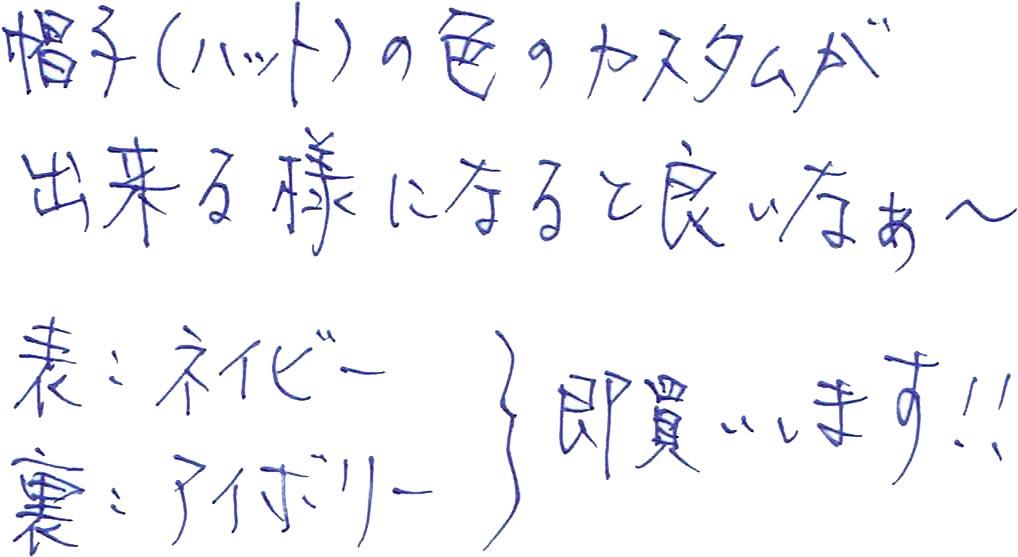 帽子(ハット)の色のカスタムが
出来る様になると良いなぁ～
表:ネイビー
裏:アイボリー
} 即買いします!!